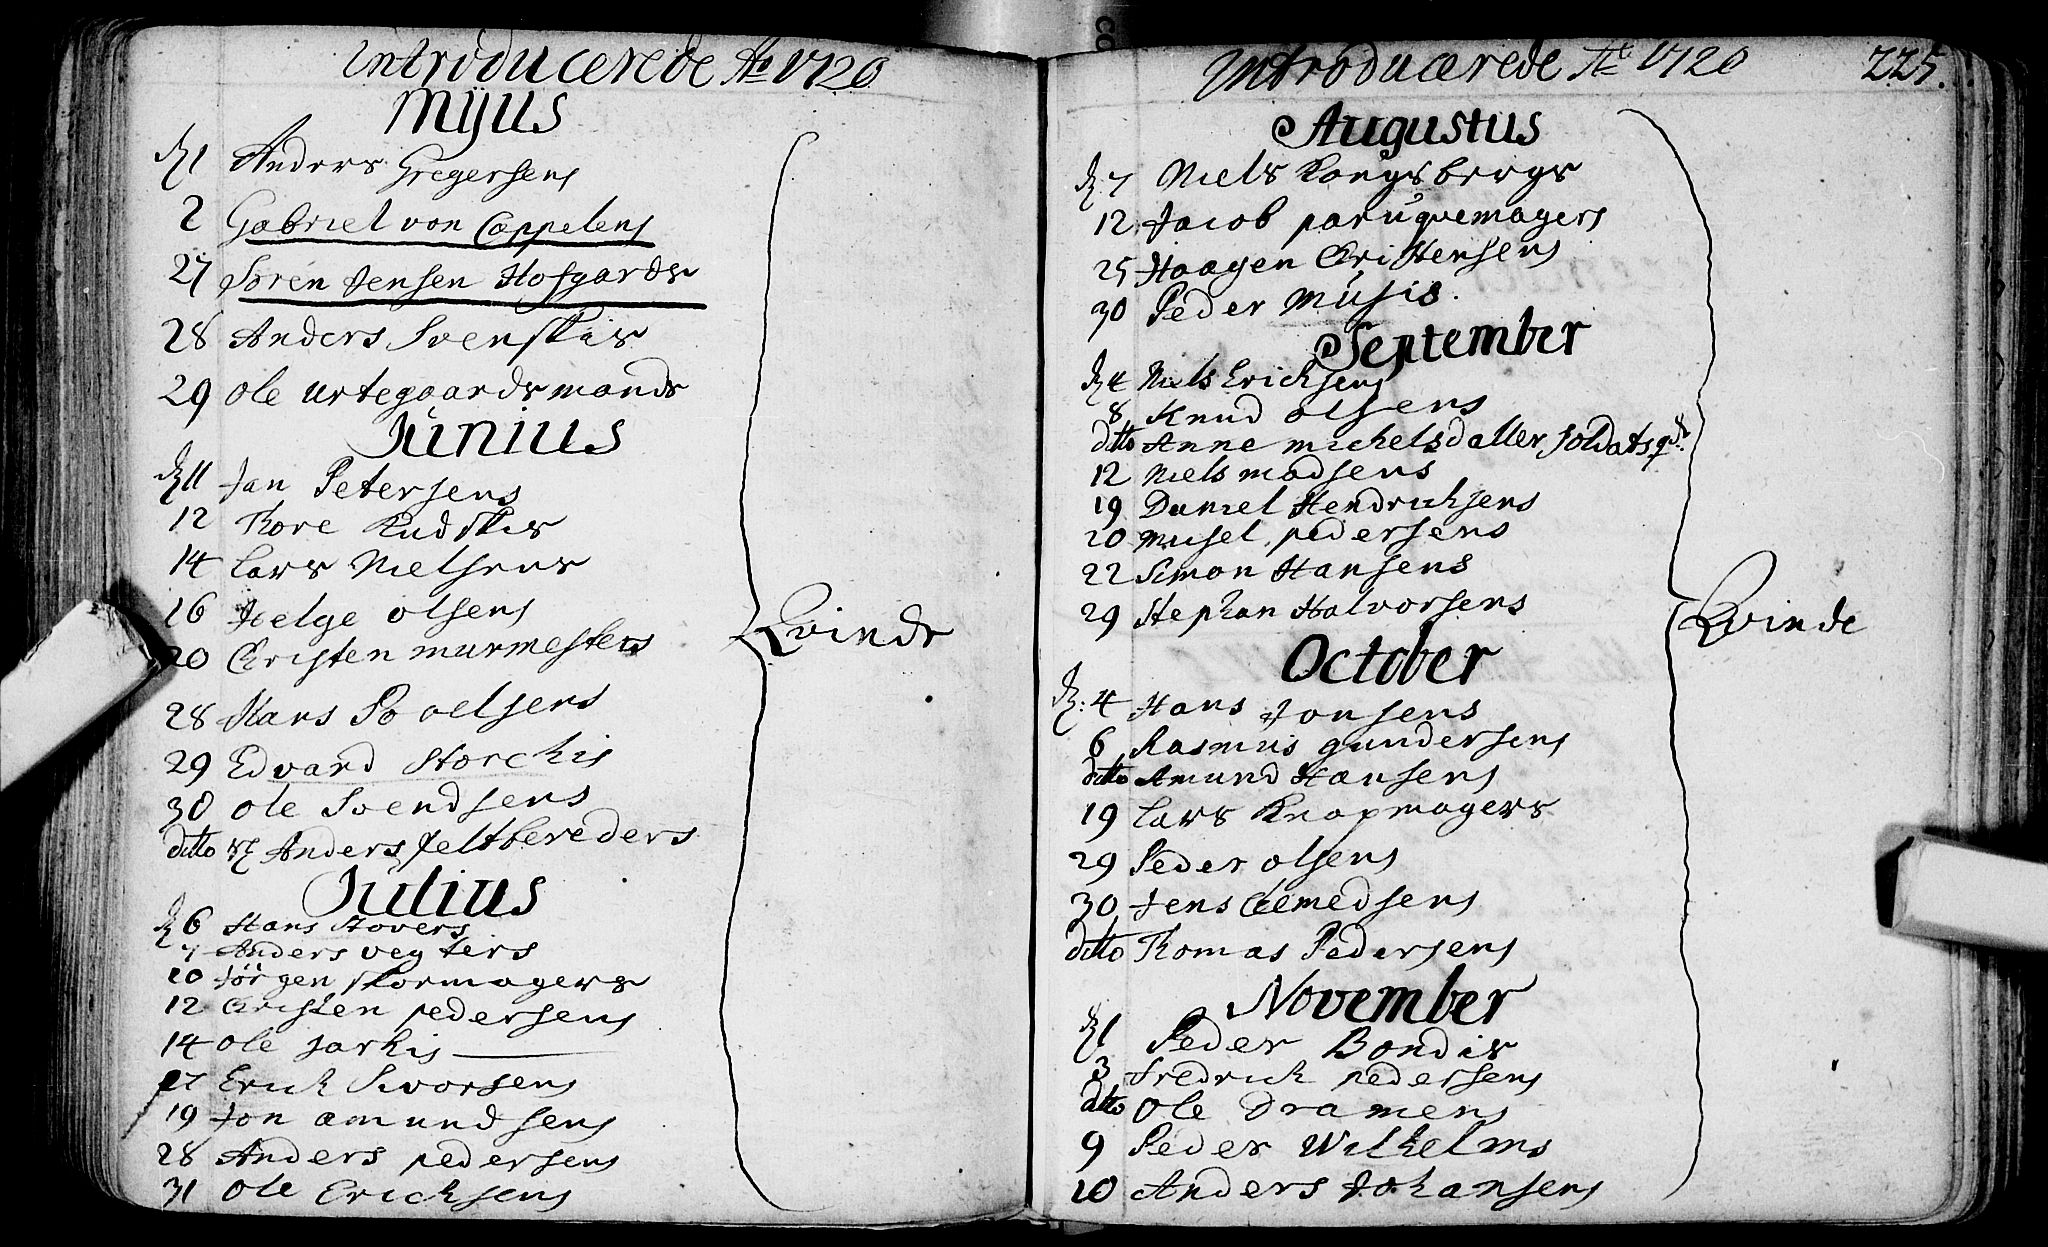 Introducerede Ao 1720
Mijus
d 1 Anders Gregersens
2 Gabriel von Cappelens
27 Søren Jensen Hofgards
28 Anders Svenskis
29 Ole urtegaardsmands
Junius
d 11 Jan Petersens
12 Thore Rudskis
14 Lars Nielsens
16 Helge olsens
20 Christen murmesters
28 Hans Povelsens
29 Edvard Storchis
30 Ole Svendsens
ditto Anders feltbereders
Julius
d 6 Hans Stovers
7 Anders vegters
10 Jørgen skormagers
12 Christen pedersens
14 Ole Jarkis
17 Erich Sivorsens
19 Jon amundsens
28 Anders pedersens
31 Ole Erichsens
Qvinde
Introducerede Ao 1720 225.
Augustus
d 7 Niels Kongsbergs
12 Jacob paruqvemagers
25 Haagen Christensens
30 Peder Musis.
September
d 4 Niels Erichsens
8 Knud olsens
ditto Anne michelsdatter, soldatsqde
12 Niels madsens
19 Daniel Hendrichsens
20 Misel pedersens
22 Simon Hansens
29 Stephan Halvorsens
October
d: 4 Hans Jonsens
6 Rasmus gundersens
ditto Amund Hansens
19 Lars Knapmagers
29 Peder olsens
30 Jens Clemedsens
ditto Thomas Pedersens
November
d 1 Peder Bondis
3 Fredrich pedersens
ditto Ole Dramens
9 Peder Wilhelms
10 Anders Johansens
Qvinde